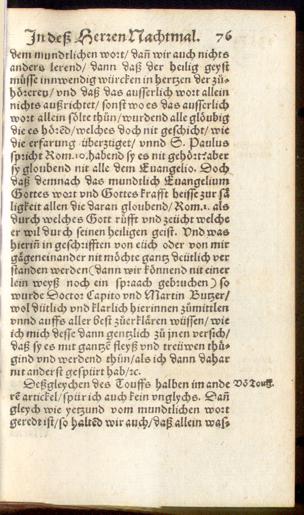 In deß Herren Nachtmal. 76
dem mundtlichen wort/ dañ wir auch nichts
anders lerend/ dann daß der heilig geyst
müsse innwendig würcken in hertzen der zů-
hörerey/ vnd daß das ausserlich wort allein
nichts außrichtet/ sonst wo es das ausserlich
wort allein sölte thůn/ wurdend alle glöubig
die es hörẽd/ welches doch nit geschicht/ wie
die erfarung überzüget/ vnnd S. Paulus
spricht Rom.10. habend sy es nit gehört? aber
sy gloubend nit alle dem Euangelio. Doch
daß demnach das mundtlich Euangelium
Gottes wort vnd Gottes krafft heisse zur sã
ligkeit allen die daran gloubend/ Rom.1. als
durch welches Gott rüfft vnd zeücht welche
er wil durch seinen heiligen geist. Vnd was
hierin̄ in geschrifften von eüch oder von mir
gägeneinander nit möchte gantz deütlich ver
standen werden (dann wir könnend nit einer
lein weyß noch ein spraach gebruchen) so
wurde Doctor Capito vnd Martin Butzer/
wol dütlich vnd klarlich hierinnen zümittlen
vnnd auffs aller best züerklären wüssen/ wie
ich mich desse dann gentzlich zů jnen versich/
daß sy es mit gantzẽ fleyß vnd treüwen thů-
gind vnd werdend thůn/ als ich dann dahar
nit anderst gespürt hab/ ꝛc.
Deßgleychen des Touffs halben im ande
Võ Touff.
rẽ artickel/ spür ich auch kein vnglychs. Dañ
gleych wie yetzund vom mundtlichen wort
geredt ist/ so haltẽd wir auch/ daß allein was-